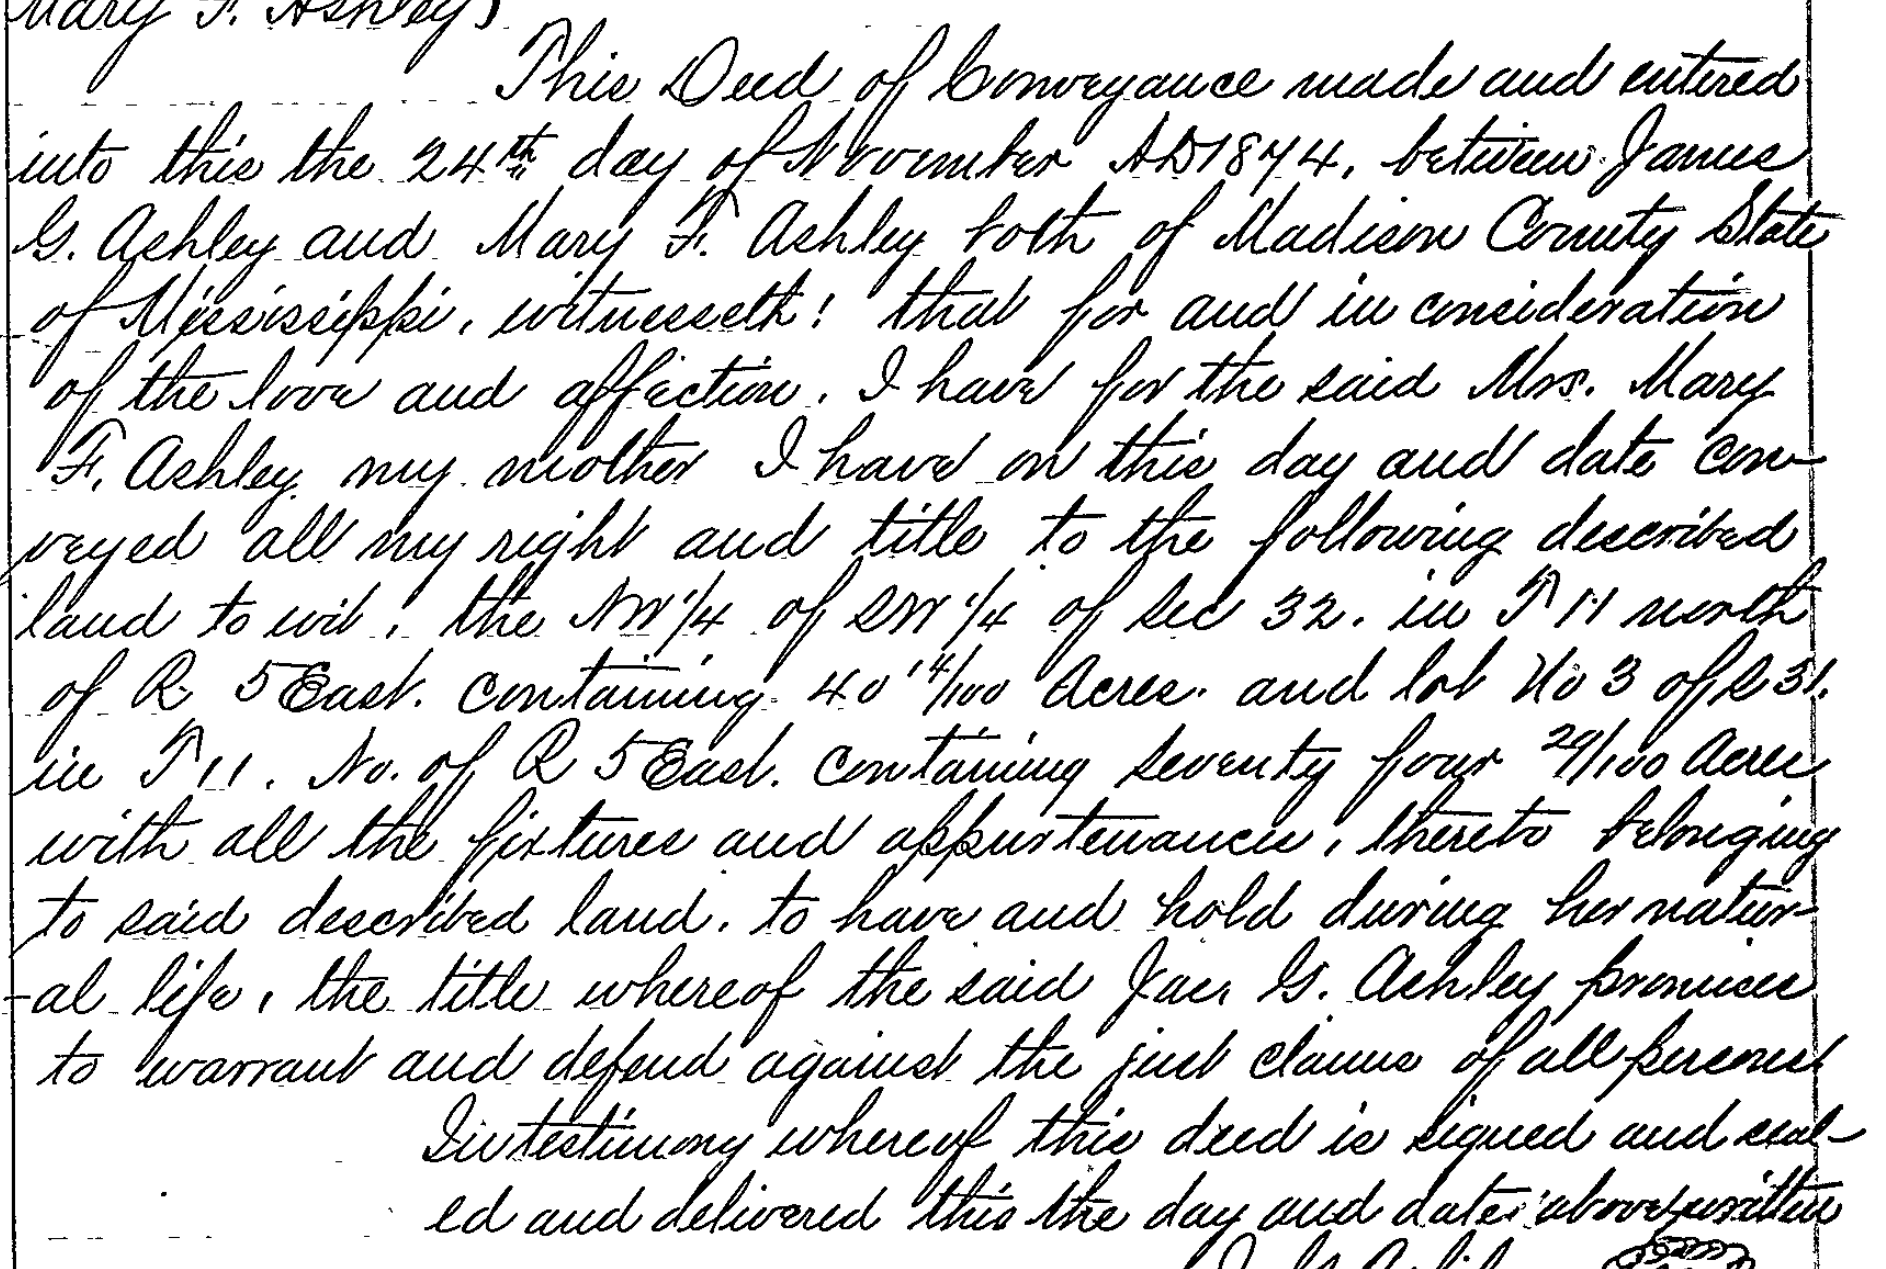 Mary F. Ashley)
This Deed of Conveyance made and entered
into this the 24th day of November AD 1874, between James
G. Ashley and Mary F. Ashley both of Madison County State
of Mississippi, witnesseth! that for and in consideration
of the love and affection, I have for the said Mrs. Mary
F. Ashley my mother I have on this day and date con-
veyed all my right and title to the following described
land to wit, the NW 1/4 of SW 1/4 of Sec 32. in T 11 north
of R 5 East. containing 40 14/100 Acres. and lot No 3 of S 31.
in T 11. No. of R 5 East. containing seventy four 29/100 Acres
with all the fixtures and appurtenances, thereto belonging
to said described land. to have and hold during her natur-
-al life, the title whereof the said Jas. G. Ashley promises
to warrant and defend against the just claims of all persons
In testimony whereof this deed is signed and seal-
ed and delivered this the day and date above written